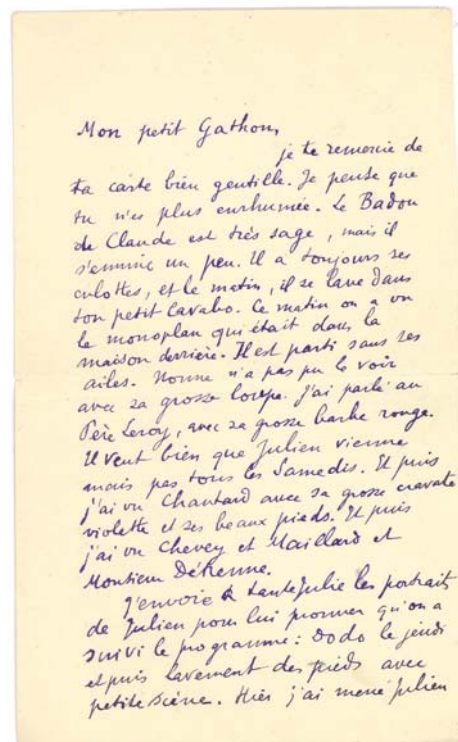 Mon petit Gathon,
je te remercie de
ta carte bien gentille. Je pense que
tu n'es plus enrhumée. Le Badou
de Claude est très sage, mais il
s'ennuie un peu. Il a toujours ses
culottes, et le matin, il se lave dans
ton petit lavabo. Ce matin on a vu
le monoplan qui était dans la
maison derrière. Il est parti sans ses
ailes. Nonne n'a pas pu le voir
avec sa grosse loupe. J'ai parlé au
Père Leroy, avec sa grosse barbe rouge.
Il veut bien que Julien vienne
mais pas tous les Samedis. Et puis
j'ai vu Chantard avec sa grosse cravate
violette et ses beaux pieds. Et puis
j'ai vu Chevey et Maillard et
Monsieur
J'envoie à tante Julie les portraits
de Julien pour lui prouver qu'on a
suivi le programme : Dodo le jeudi
et puis lavement des pieds avec
petite scène. Hier j'ai mené Julien